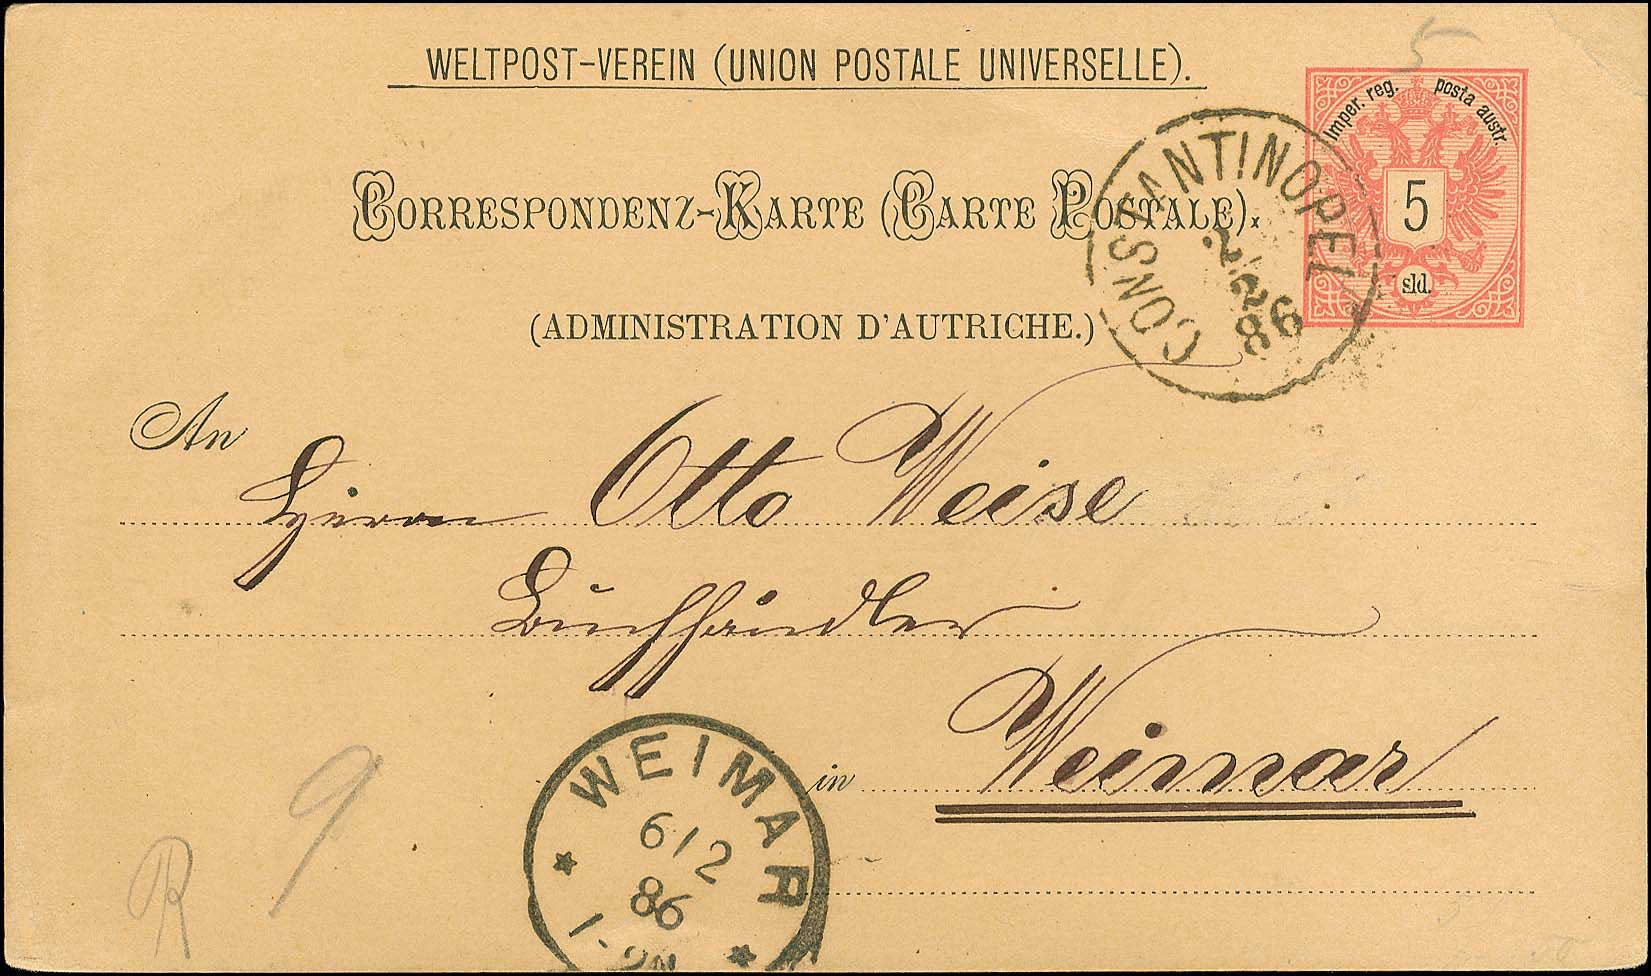 WELTPOST-VEREIN (UNION POSTALE UNIVERSELLE).
Imper. reg. posta austr.
5
sld.
CORRESPONDENZ-KARTE (CARTE POSTALE).
(ADMINISTRATION D'AUTRICHE.)
CONSTANTINOPEL
2/2
86
An
Herrn Otto Weise
Buchhändler
in Weimar
WEIMAR
6/2
86
9
R
5